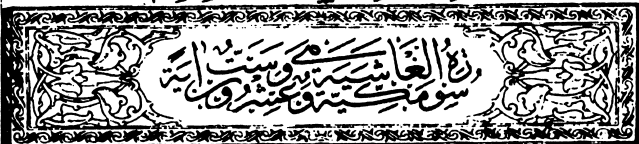 سورة الغاشية مكية وهى ست وعشرون اية